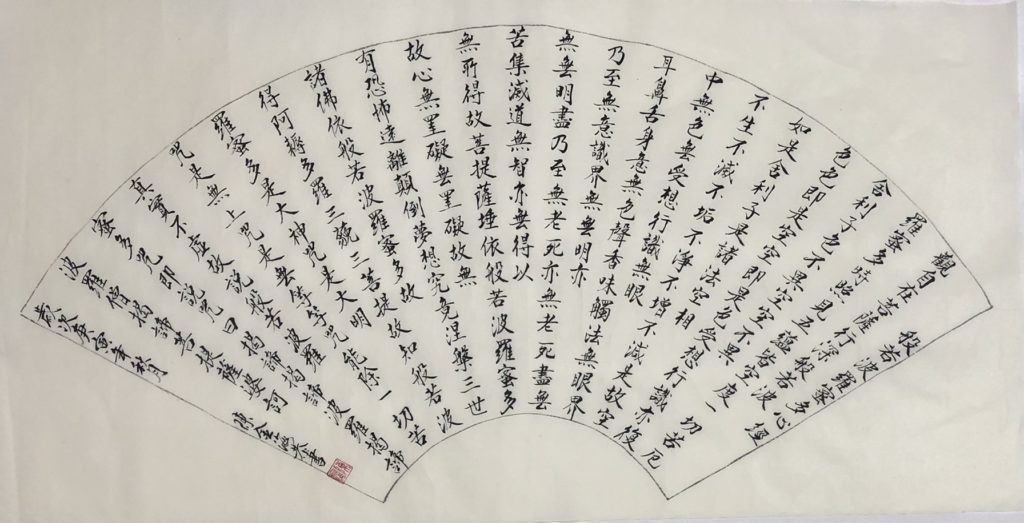 般若波羅蜜多心經
觀自在菩薩行深般若波
羅蜜多時照見五蘊皆空度一切苦厄
舍利子色不異空空不異
色色即是空空即是色受想行識亦復
如是舍利子是諸法空相
不生不滅不垢不淨不增不減是故空
中無色無受想行識無眼
耳鼻舌身意無色聲香味觸法無眼界
乃至無意識界無無明亦
無無明盡乃至無老死亦無老死盡無
苦集滅道無智亦無得以
無所得故菩提薩埵依般若波羅蜜多
故心無罣礙無罣礙故無
有恐怖遠離顛倒夢想究竟涅槃三世
諸佛依般若波羅蜜多故
得阿耨多羅三藐三菩提故知般若波
羅蜜多是大神咒是大明
咒是無上咒是無等等咒能除一切苦
真實不虛故說般若波羅
蜜多咒即說咒曰揭諦揭諦波羅揭諦
波羅僧揭諦菩提薩婆訶
歲次庚寅年秋月
恭書